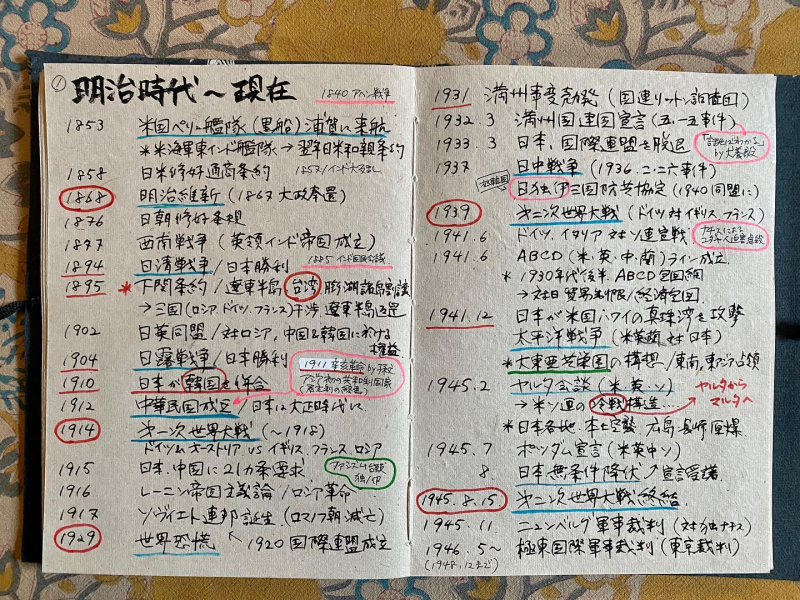 ①
明治時代〜現在
1840 アヘン戦争
1853 米国ペリー艦隊(黒船)浦賀に来航
*米海軍東インド艦隊→翌年日米和親条約
1858 日米修好通商条約
1857 インド大反乱
1868 明治維新(1867 大政奉還)
1876 日朝修好条規
1877 西南戦争(英領インド帝国成立)
1894 日清戦争/日本勝利
1885 インド国民会議
1895 *下関条約/遼東半島 台湾 膨湖諸島割譲
→三国(ロシア、ドイツ、フランス)干渉 遼東半島返還
1902 日英同盟/対ロシア、中国&韓国における
権益
1904 日露戦争/日本勝利
1911 辛亥革命 by 孫文
アジア初の共和制国家
1910 日本が韓国を併合
1912 中華民国成立/日本は大正時代に
1914 第一次世界大戦(〜1918)
ドイツ&オーストリア VS イギリス、フランス、ロシア
1915 日本、中国に21カ条要求
ファシズム台頭
独/伊
1916 レーニン帝国主義論/ロシア革命
1917 ソヴィエト連邦誕生(ロマノフ朝滅亡)
1929 世界恐慌
1920 国際連盟成立
1931 満州事変勃発(国連リットン調査団)
1932.3 満州国建国宣言(五・一五事件)
1933.3 日本、国際連盟を脱退
「話せばわかる」
by 犬養毅
1937 日中戦争(1936.二・二六事件)
枢軸国
日独伊三国防共協定(1940同盟に)
1939 第二次世界大戦(ドイツ対イギリス、フランス)
1941.6 ドイツ、イタリア 対ソ連宣戦
ナチスによる
ユダヤ人迫害
1941.6 ABCD(米・英・中・蘭)ライン成立
*1930年代後半 ABCD包囲網
→対日貿易制限/経済包囲
1941.12 日本が米国ハワイの真珠湾を攻撃
太平洋戦争(米英蘭対日本)
*大東亜共栄圏の構想/東南、東アジア占領
1945.2 ヤルタ会談(米・英・ソ)
→米ソ連の冷戦構造…
ヤルタから
マルタへ
*日本各地、本土空襲 広島・長崎原爆
1945.7 ポツダム宣言(米英中ソ)
8 日本無条件降伏 宣言受諾
1945.8.15 第二次世界大戦終結
1945.11 ニュンベルグ軍事裁判(対独ナチス)
1946.5〜 極東国際軍事裁判(東京裁判)
(1948.12まで)